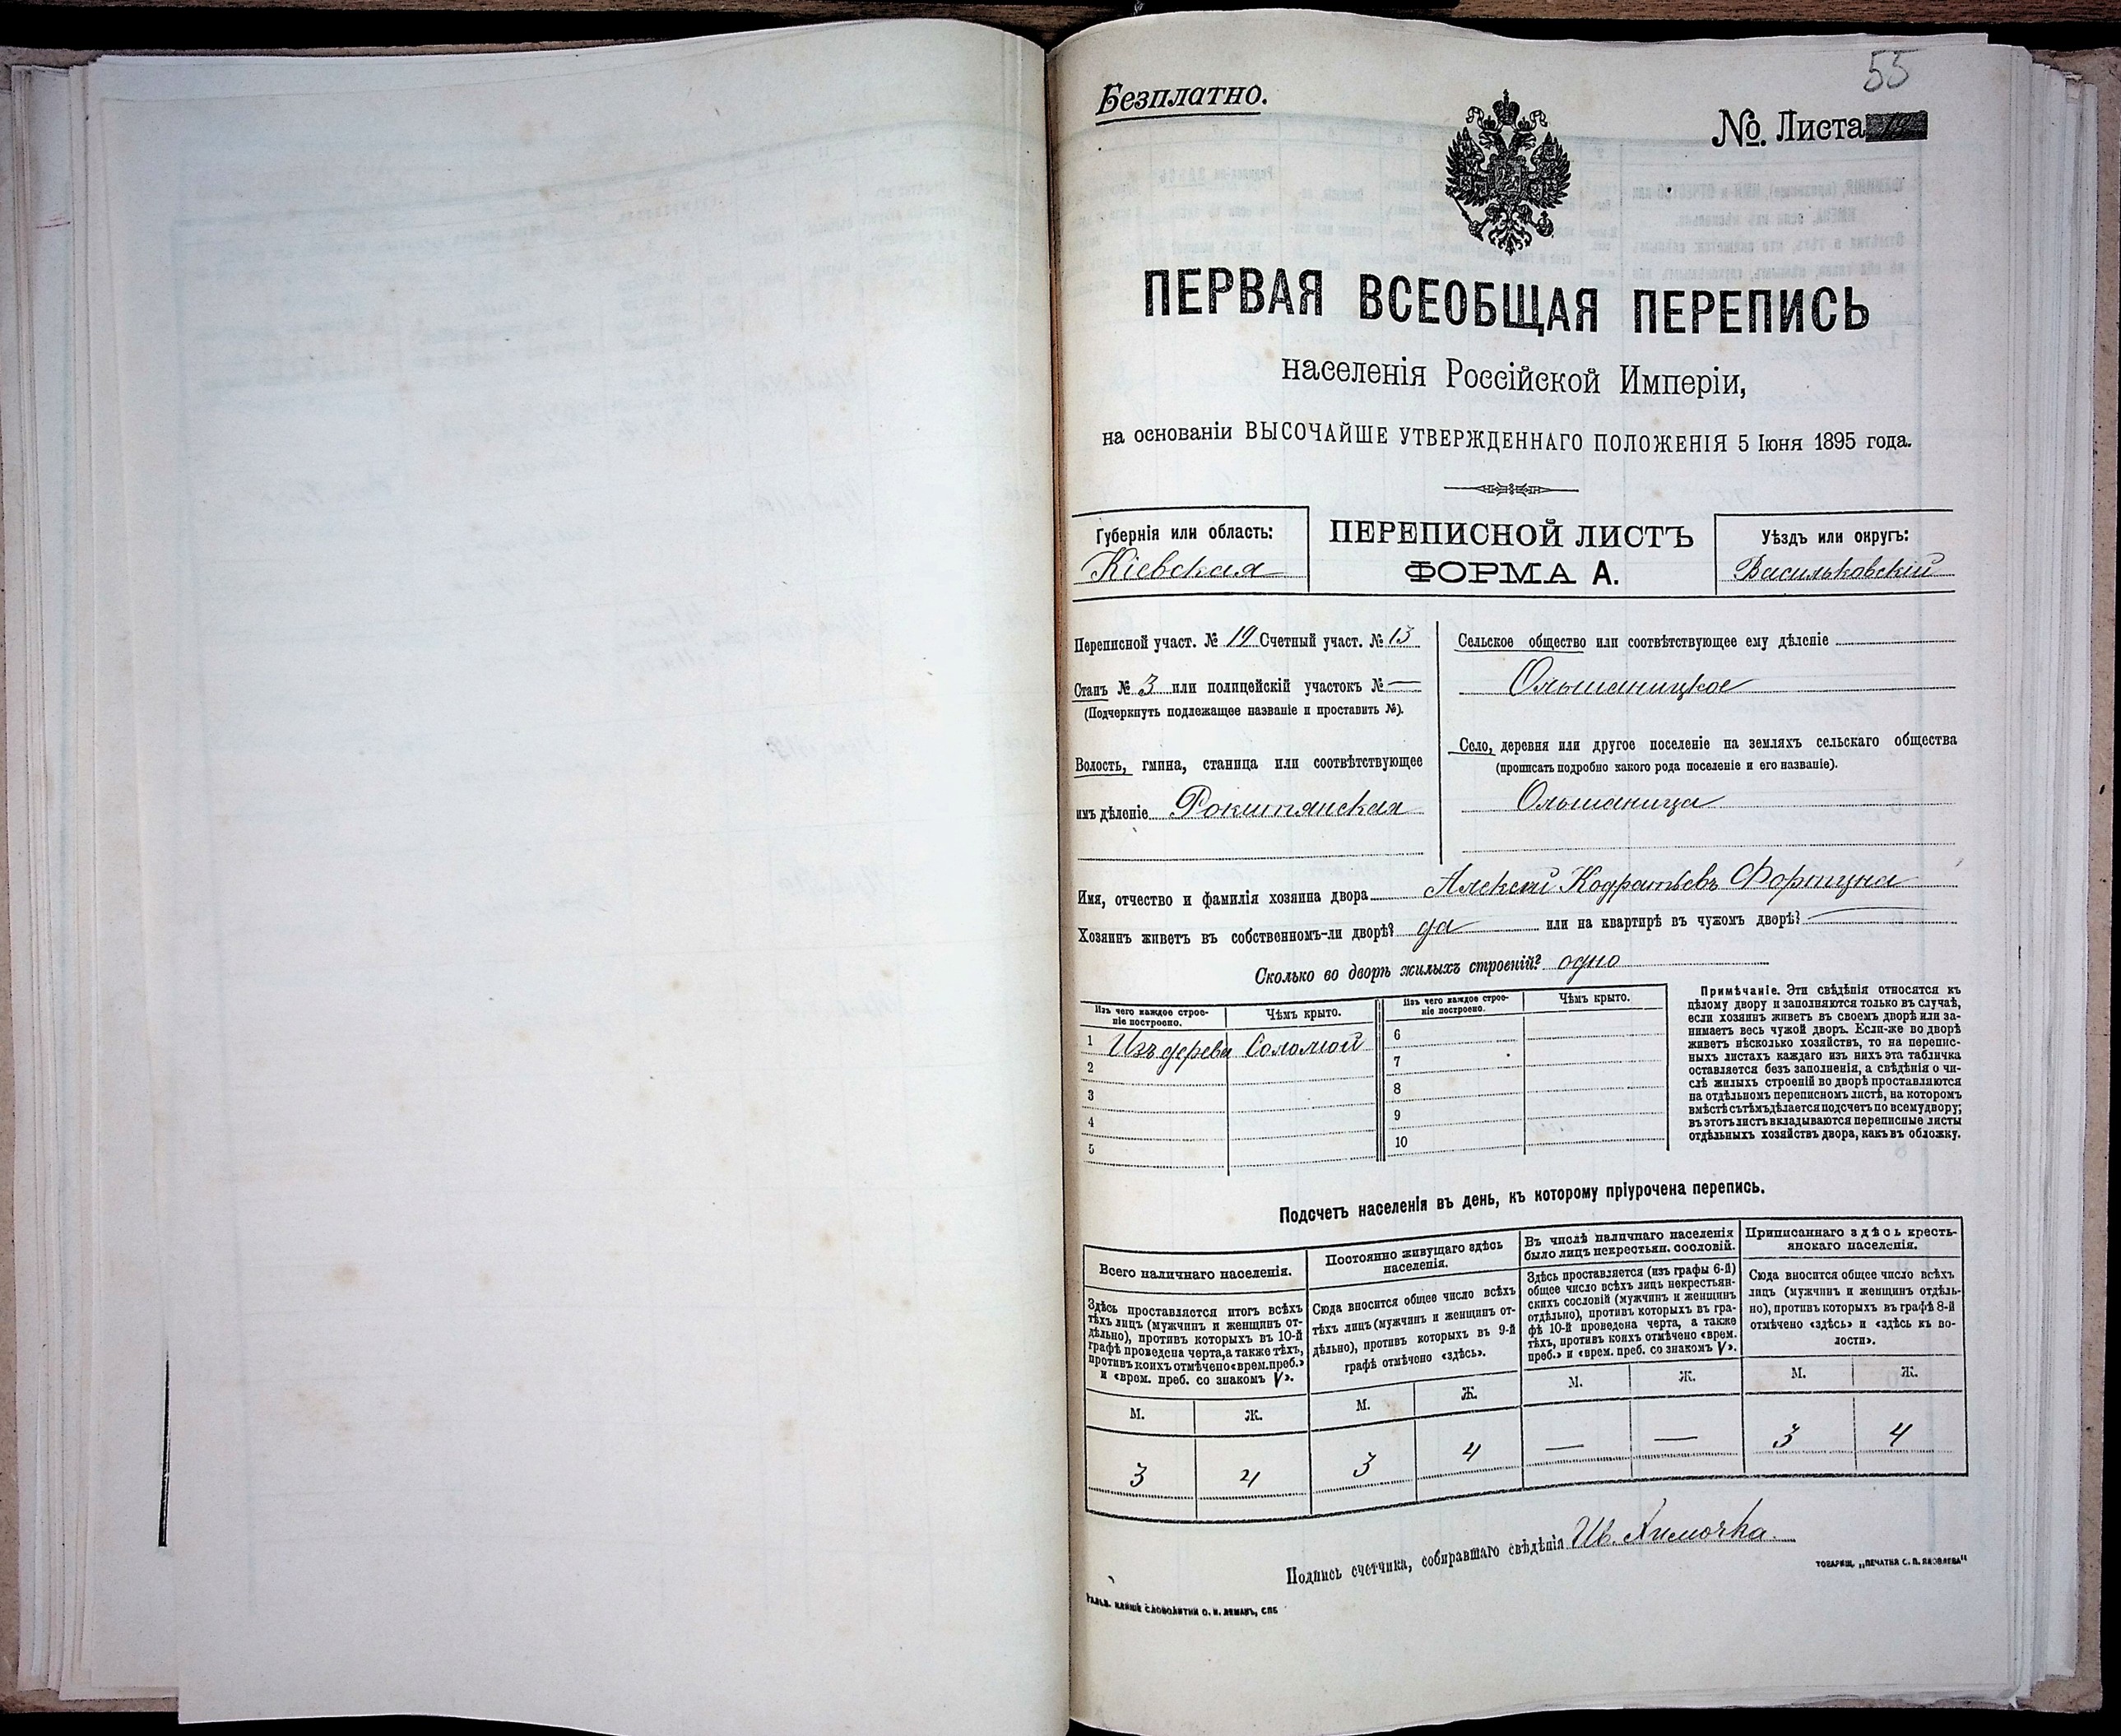 55
Безплатно.
№ Листа 19
ПЕРВАЯ ВСЕОБЩАЯ ПЕРЕПИСЬ
населенія Россійской Имперіи,
на основаніи ВЫСОЧАЙШЕ УТВЕРЖДЕННАГО ПОЛОЖЕНІЯ 5 Іюня 1895 года.
Губернія или область:
Кіевская
ПЕРЕПИСНОЙ ЛИСТЪ
ФОРМА А.
Уѣздъ или округъ:
Васильковскій
Переписной участ. № 19 Счетный участ. № 13
Станъ № 3 или полицейскій участокъ № —
(Подчеркнуть подлежащее названіе и проставить №).
Волость, гмина, станица или соотвѣтствующее
имъ дѣленіе Рокитянская
Сельское общество или соотвѣтствующее ему дѣленіе
Ольшаницкое
Село, деревня или другое поселеніе на земляхъ сельскаго общества
(прописать подробно какого рода поселеніе и его названіе).
Ольшаница
Имя, отчество и фамилія хозяина двора Алексѣй Кодратьевъ Фортуна
Хозяинъ живетъ въ собственномъ-ли дворѣ? да или на квартирѣ въ чужомъ дворѣ? —
Сколько во дворѣ жилыхъ строеній? одно
Изъ чего каждое строе-
ніе построено.
Чѣмъ крыто.
1 Изъ дерева Соломой
2
3
4
5
Изъ чего каждое строе-
ніе построено.
Чѣмъ крыто.
6
7
8
9
10
Примѣчаніе. Эти свѣдѣнія относятся къ
цѣлому двору и заполняются только въ случаѣ,
если хозяинъ живетъ въ своемъ дворѣ или за-
нимаетъ весь чужой дворъ. Если-же во дворѣ
живетъ нѣсколько хозяйствъ, то на перепис-
ныхъ листахъ каждаго изъ нихъ эта табличка
оставляется безъ заполненія, а свѣдѣнія о чи-
слѣ жилыхъ строеній во дворѣ проставляются
на отдѣльномъ переписномъ листѣ, на которомъ
вмѣстѣ съ тѣмъ дѣлается подсчетъ по всему двору;
въ этотъ листъ вкладываются переписные листы
отдѣльныхъ хозяйствъ двора, какъ въ обложку.
Подсчетъ населенія въ день, къ которому пріурочена перепись.
Всего наличнаго населенія.
Здѣсь проставляется итогъ всѣхъ
тѣхъ лицъ (мужчинъ и женщинъ от-
дѣльно), противъ которыхъ въ 10-й
графѣ проведена черта, а также тѣхъ,
противъ коихъ отмѣчено «врем. преб.»
и «врем. преб. со знакомъ V».
М. Ж.
3 4
Постоянно живущаго здѣсь
населенія.
Сюда вносится общее число всѣхъ
тѣхъ лицъ (мужчинъ и женщинъ от-
дѣльно), противъ которыхъ въ 9-й
графѣ отмѣчено «здѣсь».
М. Ж.
3 4
Въ числѣ наличнаго населенія
было лицъ некрестьян. сословій.
Здѣсь проставляется (изъ графы 6-й)
общее число всѣхъ лицъ некрестьян-
скихъ сословій (мужчинъ и женщинъ
отдѣльно), противъ которыхъ въ гра-
фѣ 10-й проведена черта, а также
тѣхъ, противъ коихъ отмѣчено «врем.
преб.» и «врем. преб. со знакомъ V».
М. Ж.
— —
Приписаннаго здѣсь кресть-
янскаго населенія.
Сюда вносится общее число всѣхъ
лицъ (мужчинъ и женщинъ отдѣль-
но), противъ которыхъ въ графѣ 8-й
отмѣчено «здѣсь» и «здѣсь къ во-
лости».
М. Ж.
3 4
Подпись счетчика, собиравшаго свѣдѣнія Ив. Химочка.
ТОВАРИЩ. „ПЕЧАТНЯ С. П. ЯКОВЛЕВА"
ГАЛЬВ. КЛИШЕ СЛОВОЛИТНИ О. И. ЛЕМАНЪ, СПБ